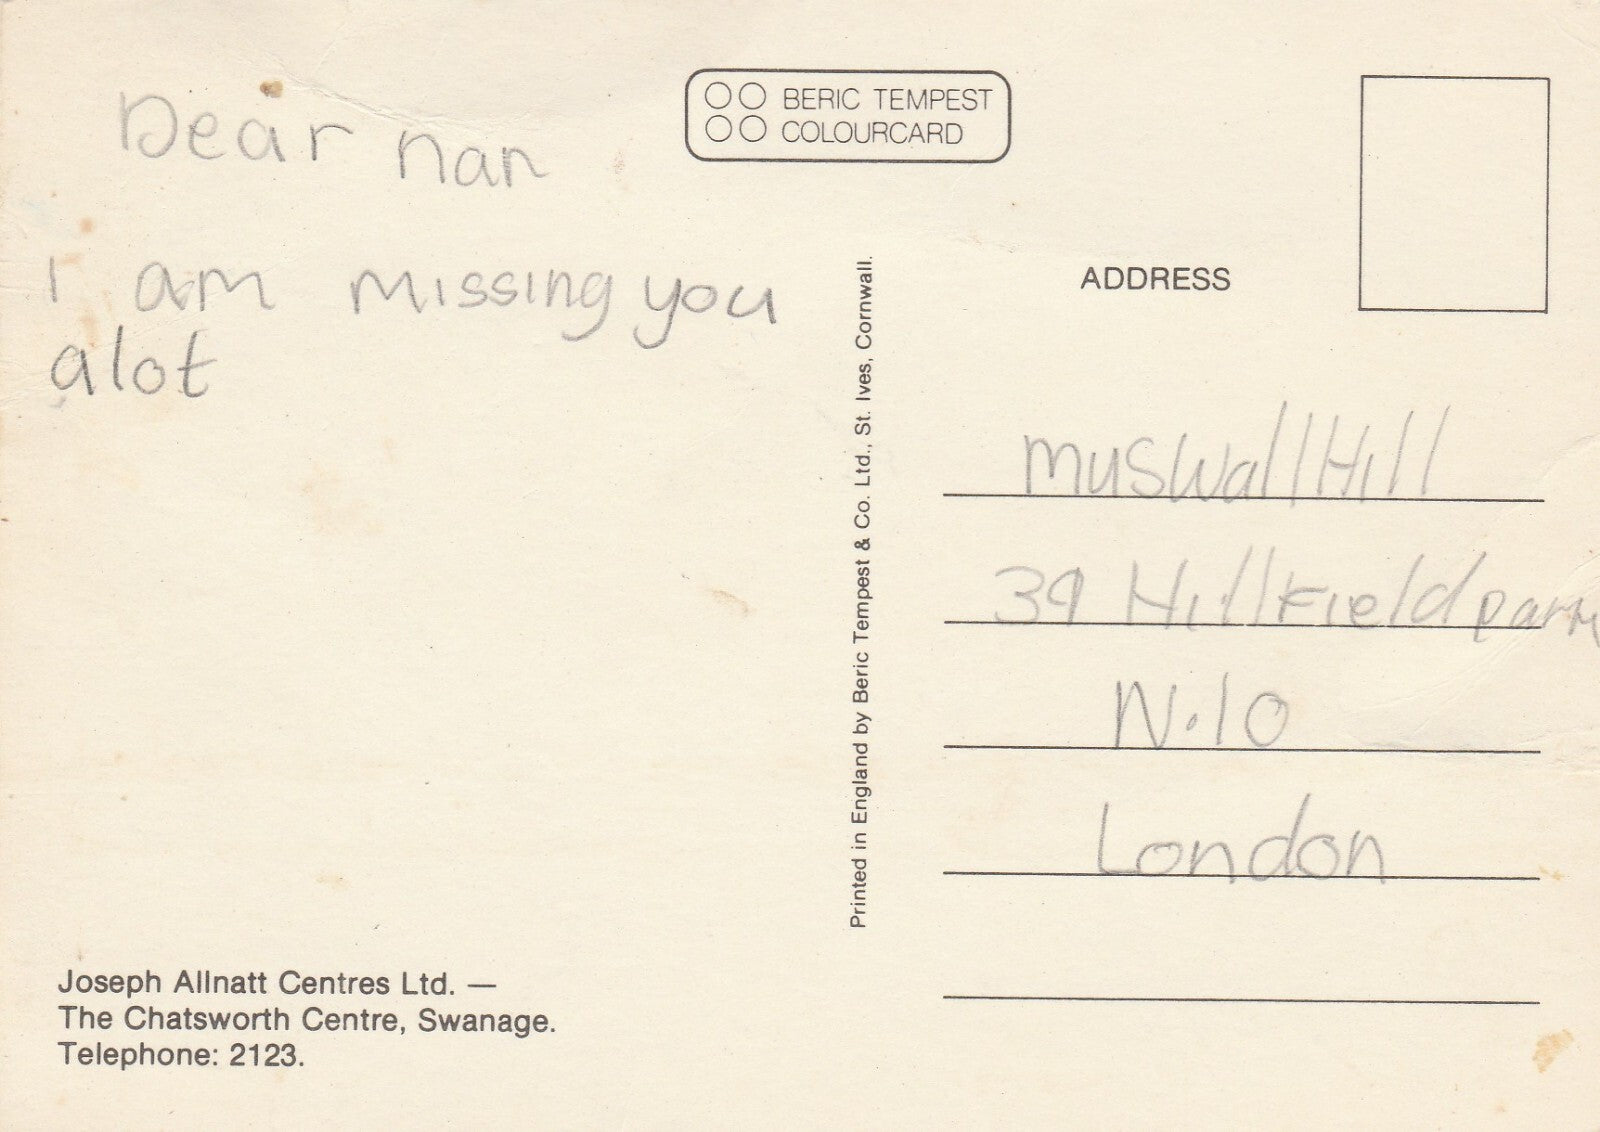 Dear nan
I am missing you
alot
BERIC TEMPEST
COLOURCARD
ADDRESS
Muswall Hill
39 Hillfield park
N.10
London
Printed in England by Beric Tempest & Co. Ltd., St. Ives, Cornwall.
Joseph Allnatt Centres Ltd. —
The Chatsworth Centre, Swanage.
Telephone: 2123.